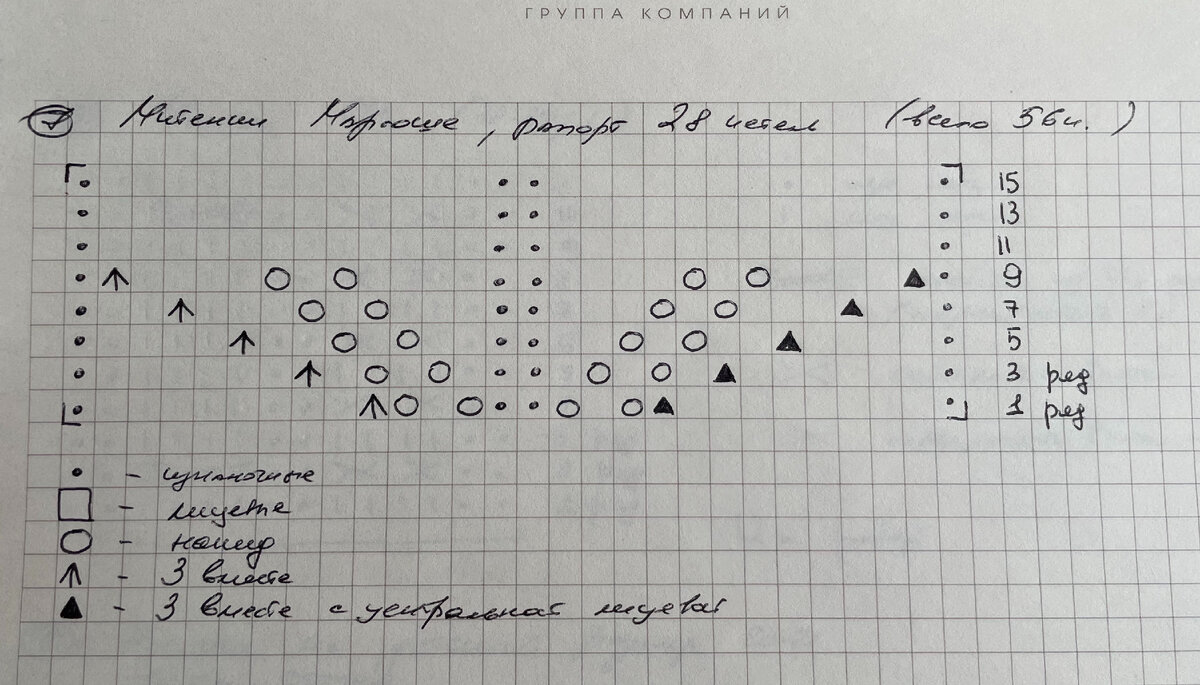 ГРУППА КОМПАНИЙ
7 Митенки , рапорт 28 петел (всего 56п.)
15
13
11
9
7
5
3 ряд
1 ряд
- изнаночные
- лицевые
- накид
- 3 вместе
- 3 вместе с центральной лицевой